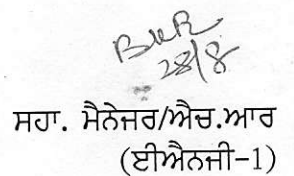 28/8
ਸਹਾ. ਮੈਨੇਜਰ/ਐਚ.ਆਰ
(ਈਐਨਜੀ-1)